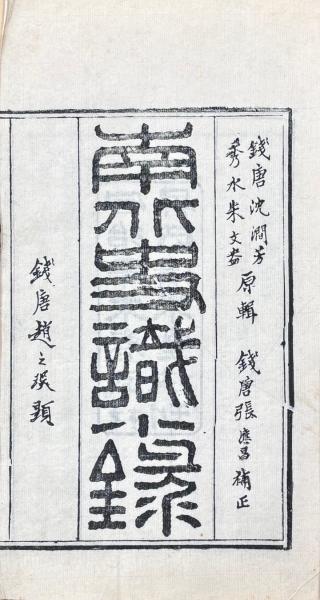 錢唐沈澗芳
秀水朱文盎
原輯 錢唐張應昌補正
南北史識小錄
錢唐趙之琛題